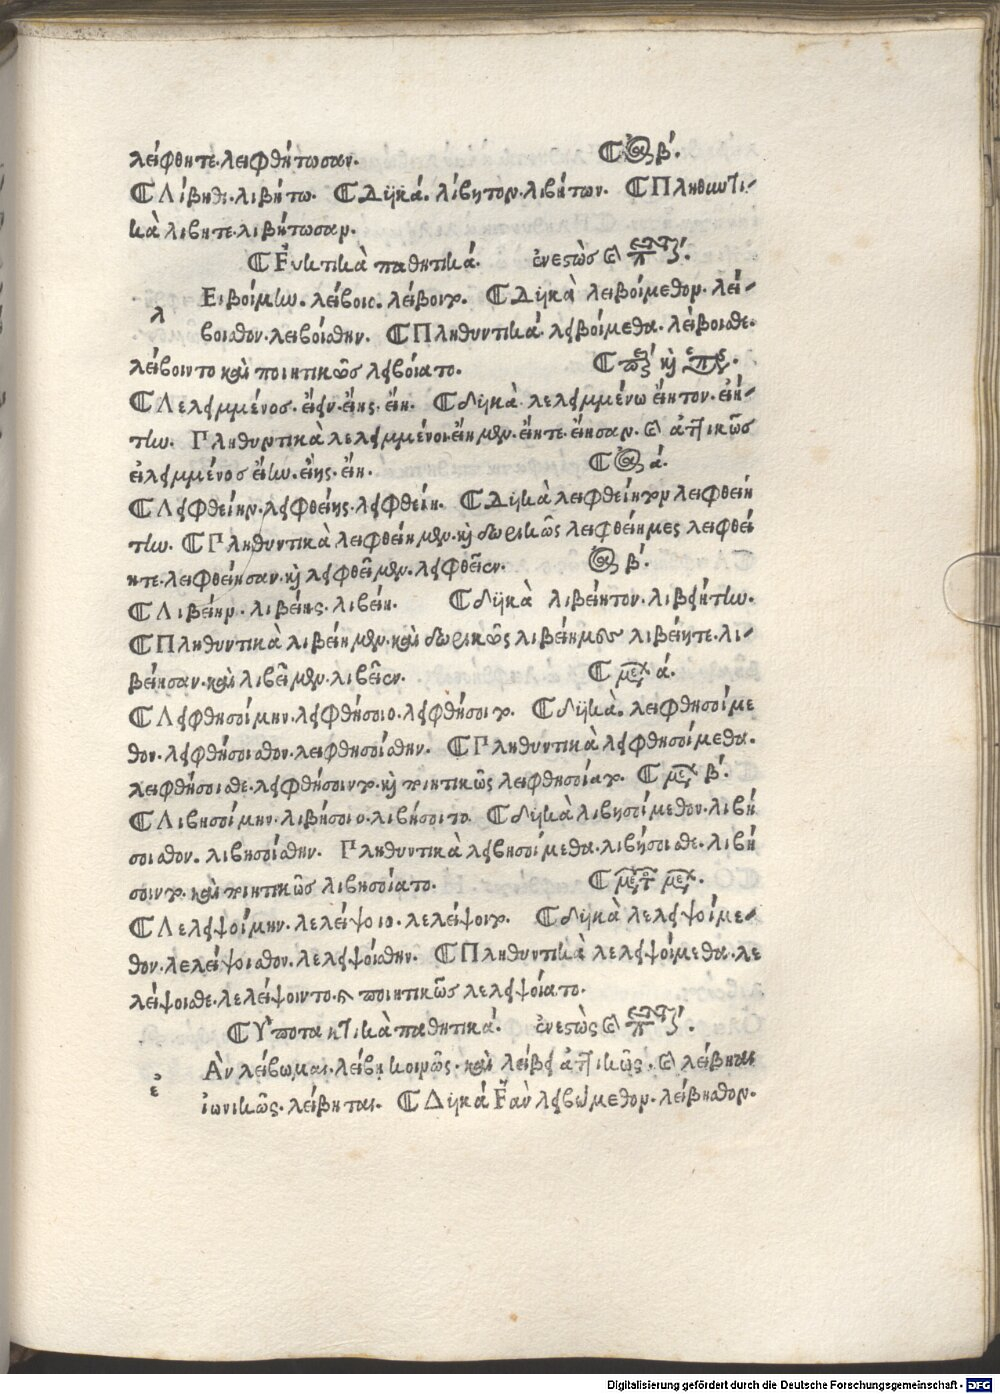 λείφθητε. λειφθήτωσαν. β΄.
Λίβηθι. λιβήτω. Δυϊκά. λίβητον. λιβήτων. Πληθυντι-
κὰ λίβητε. λιβήτωσαν.
Εὐκτικὰ παθητικά. ἐνεστὼς
Ειβοίμην. λείβοιο. λείβοιτο. Δυϊκὰ λειβοίμεθον. λεί-
λ
βοισθον. λειβοίσθην. Πληθυντικά. λειβοίμεθα. λείβοισθε.
λείβοιντο καὶ ποιητικῶς λειβοίατο.
Λελειμμένος. εἴην. εἴης. εἴη. δυϊκὰ λελειμμένω εἴητον. εἰή-
την. Πληθυντικὰ λελειμμένοι εἴημεν. εἴητε. εἴησαν. ἀττικῶς
εἰλειμμένος εἴην. εἴης. εἴη. ά.
Λειφθείην. λειφθείης. λειφθείη. Δυϊκὰ λειφθείητον λειφθειή
την. Πληθυντικὰ λειφθείημεν. καὶ δωρικῶς λειφθείημες λειφθεί
ητε. λειφθείησαν. καὶ λειφθεῖμεν. λειφθεῖεν. β΄.
Λιβείην. λιβείης. λιβείη. δυϊκὰ λιβείητον. λιβειήτην.
Πληθυντικὰ λιβείημεν. καὶ δωρικῶς λιβείημες λιβείητε. λι-
βείησαν. καὶ λιβεῖμεν. λιβεῖεν. ά.
Λειφθησοίμην. λειφθήσοιο. λειφθήσοιτο. δυϊκὰ. λειφθησοίμε
θον. λειφθήσοισθον. λειφθησοίσθην. Πληθυντικὰ λειφθησοίμεθα.
λειφθήσοισθε. λειφθήσοιντο. καὶ ποιητικῶς λειφθησοίατο. β΄.
Λιβησοίμην. λιβήσοιο. λιβήσοιτο. δυϊκὰ λιβησοίμεθον. λιβή
σοισθον. λιβησοίσθην. Πληθυντικὰ λιβησοίμεθα. λιβήσοισθε. λιβή
σοιντο. καὶ ποιητικῶς λιβησοίατο.
Λελειψοίμην. λελείψοιο. λελείψοιτο. δυϊκὰ λελειψοίμε-
θον. λελείψοισθον. λελειψοίσθην. Πληθυντικὰ λελειψοίμεθα. λε
λείψοισθε. λελείψοιντο. καὶ ποιητικῶς λελειψοίατο.
Υποτακτικὰ παθητικά. ἐνεστὼς
Ἀν λείβωμαι. λείβῃ κοινῶς. καὶ λείβει ἀττικῶς. λείβηαι
ἐ
ἰωνικῶς. λείβηται. Δυϊκά Εὰν λειβώμεθον. λείβησθον.